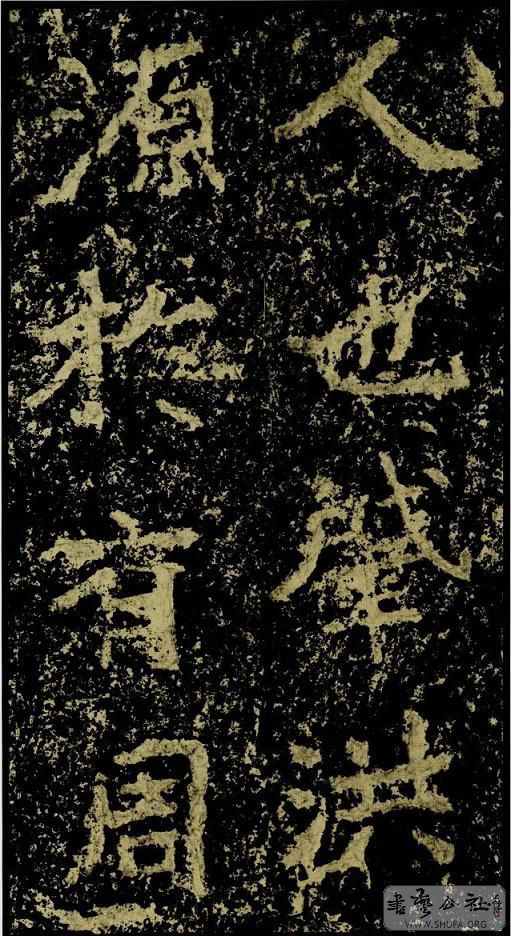 人也肇洪
源於有周
書藝公社
WWW.SHUFA.ORG